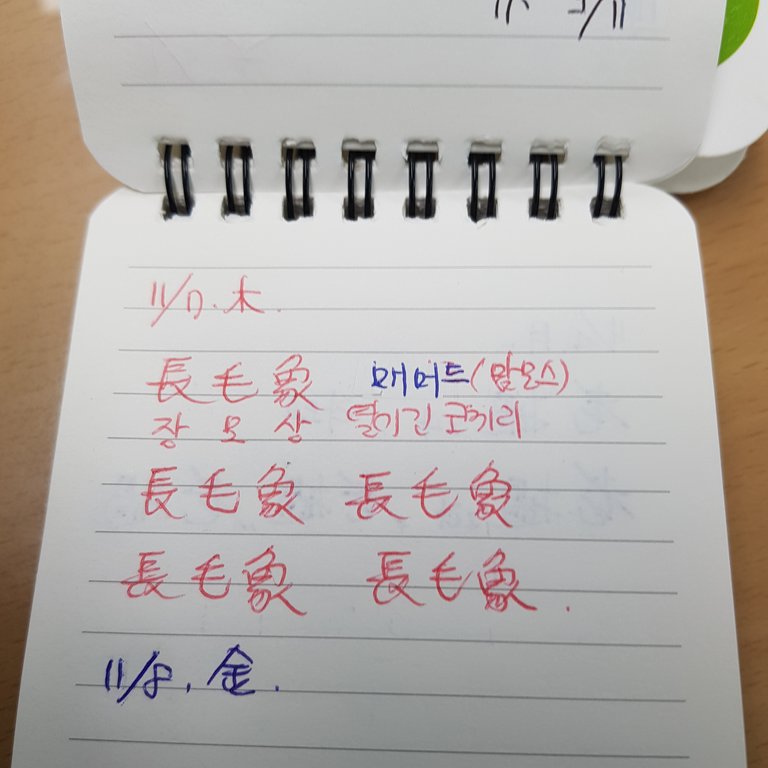 11/7. 木.
長毛象 매머트(맘모스)
장모상 털이긴 코끼리
長毛象 長毛象
長毛象 長毛象.
11/8, 金.